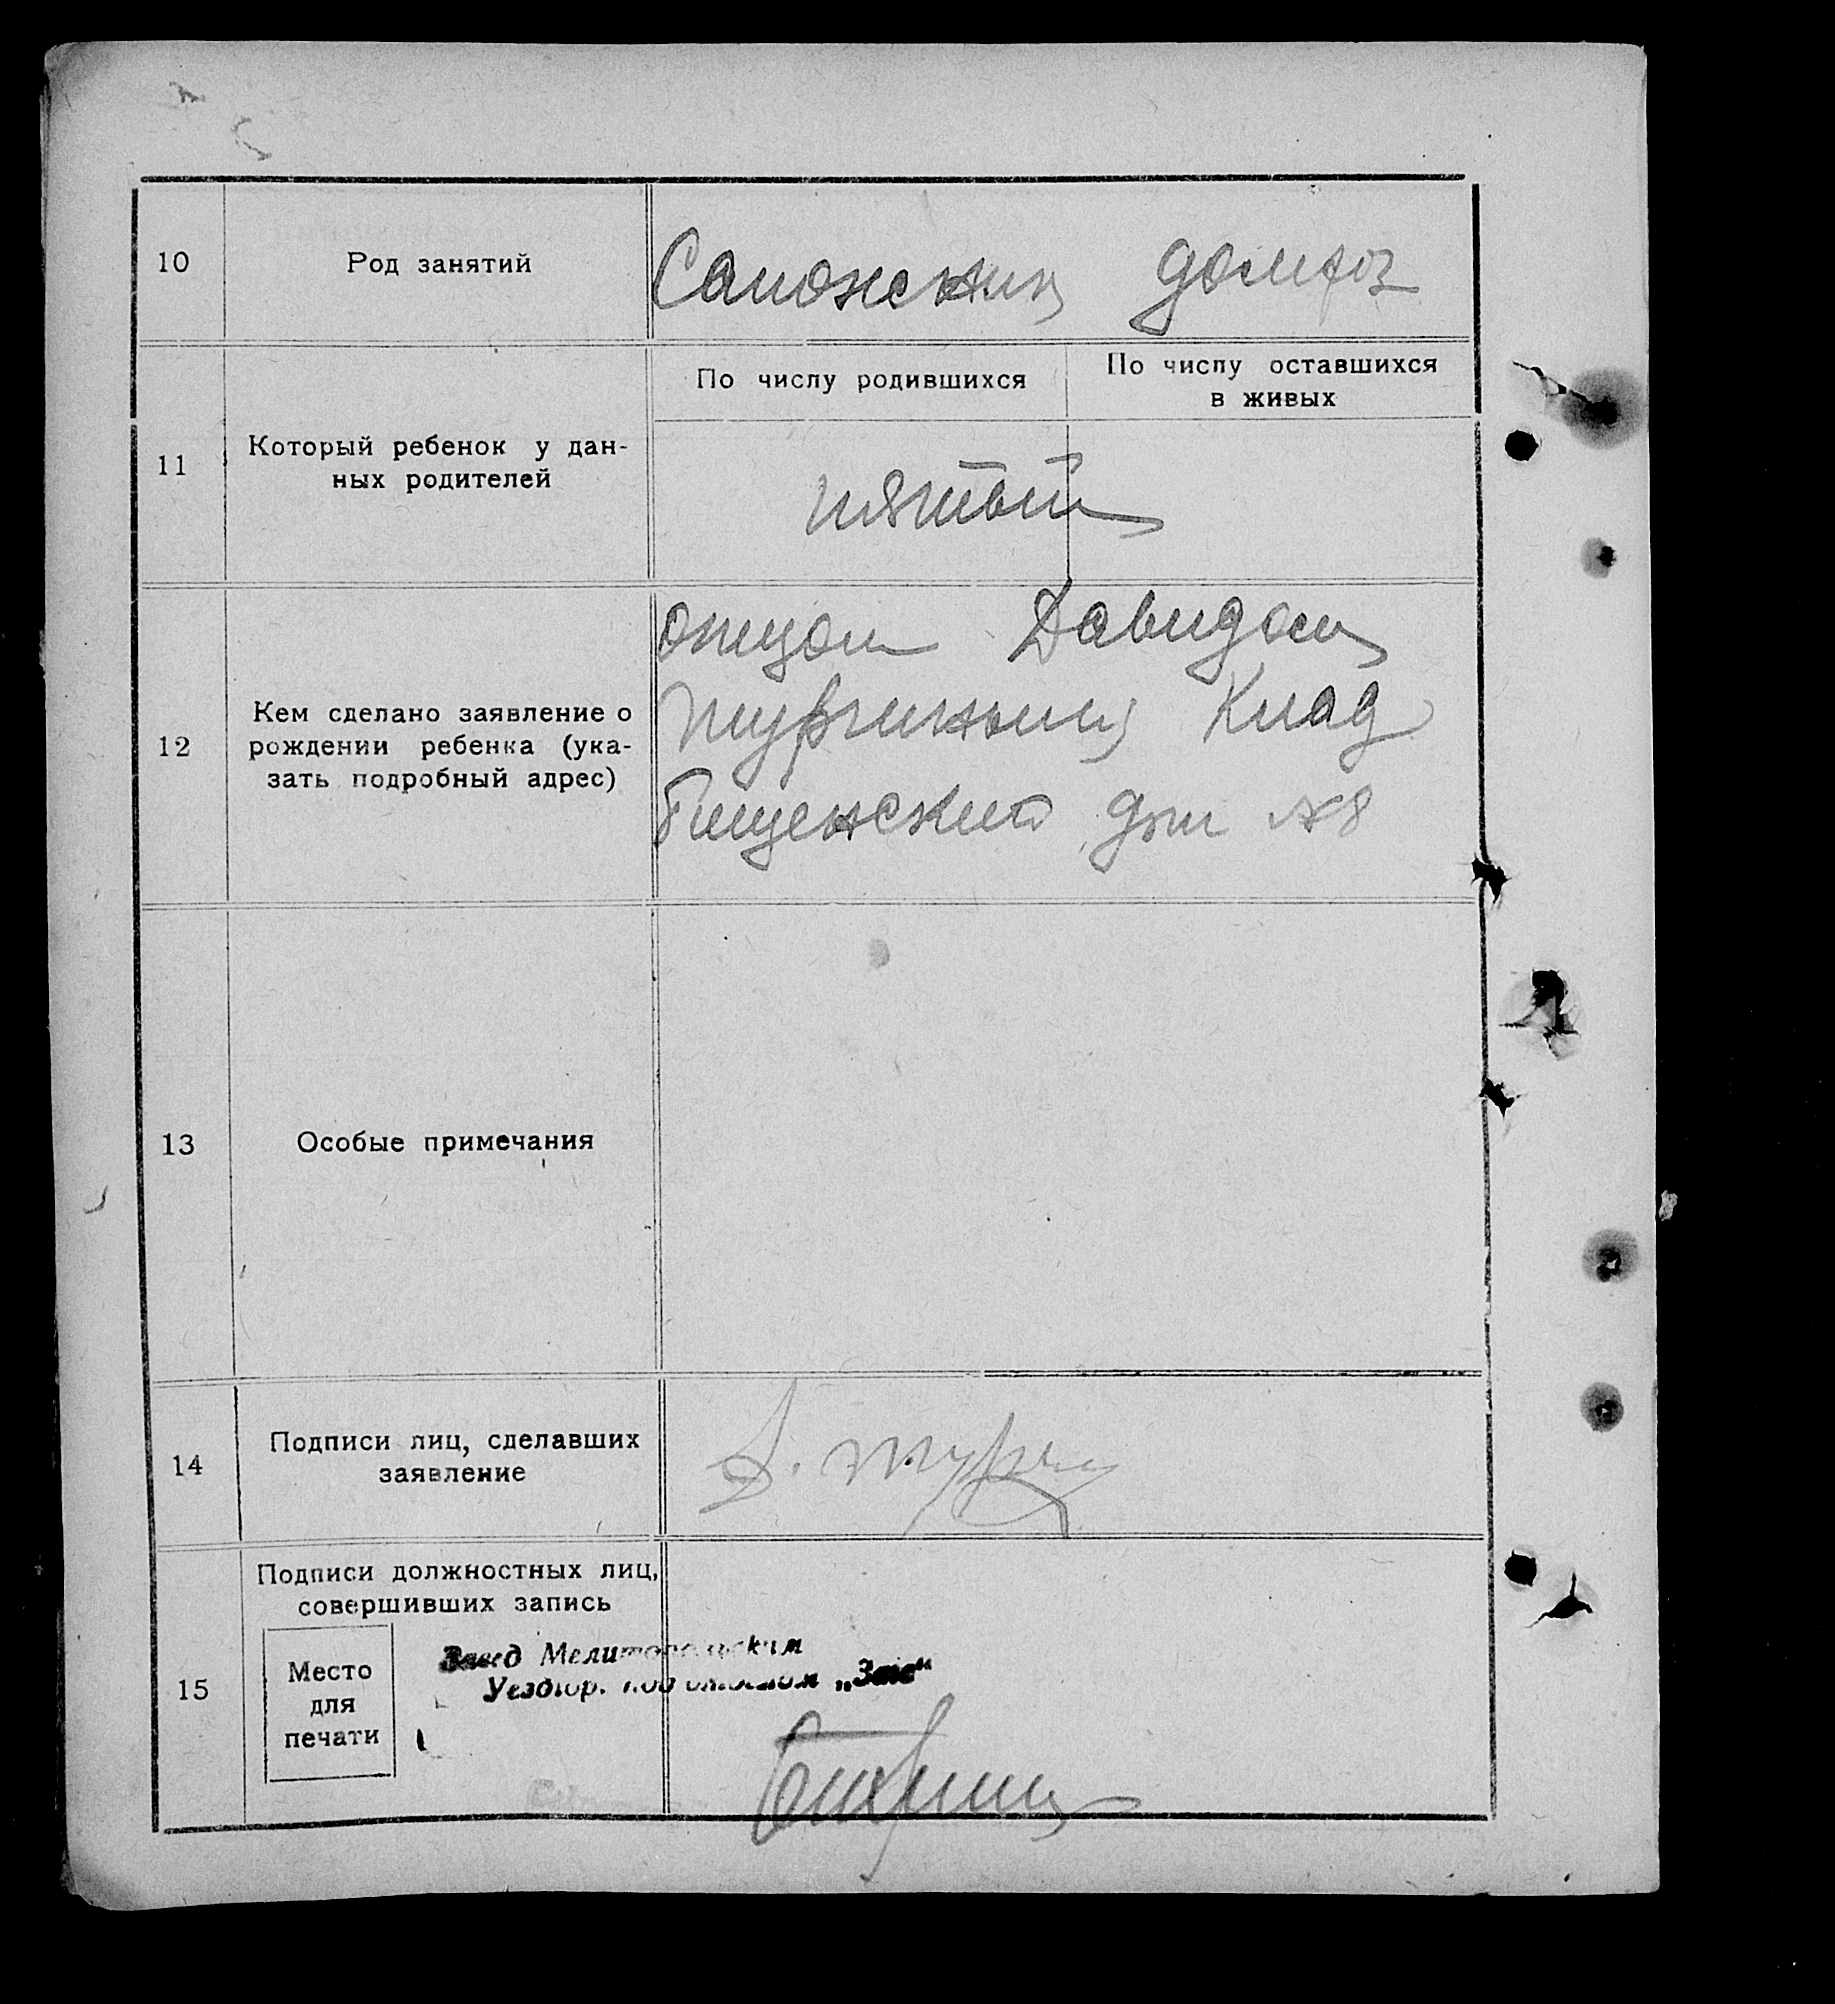 10 Род занятий Сапожник домхоз
По числу родившихся По числу оставшихся
в живых
11 Который ребенок у дан-
ных родителей
пятый
12 Кем сделано заявление о
рождении ребенка (ука-
зать подробный адрес)
отцом Давидом
Клад
дом №8
13 Особые примечания
14 Подписи лиц, сделавших
заявление
15 Подписи должностных лиц,
совершивших запись
Место
для
печати
Завед Мелитопольским
Уездгор. под „Загс“